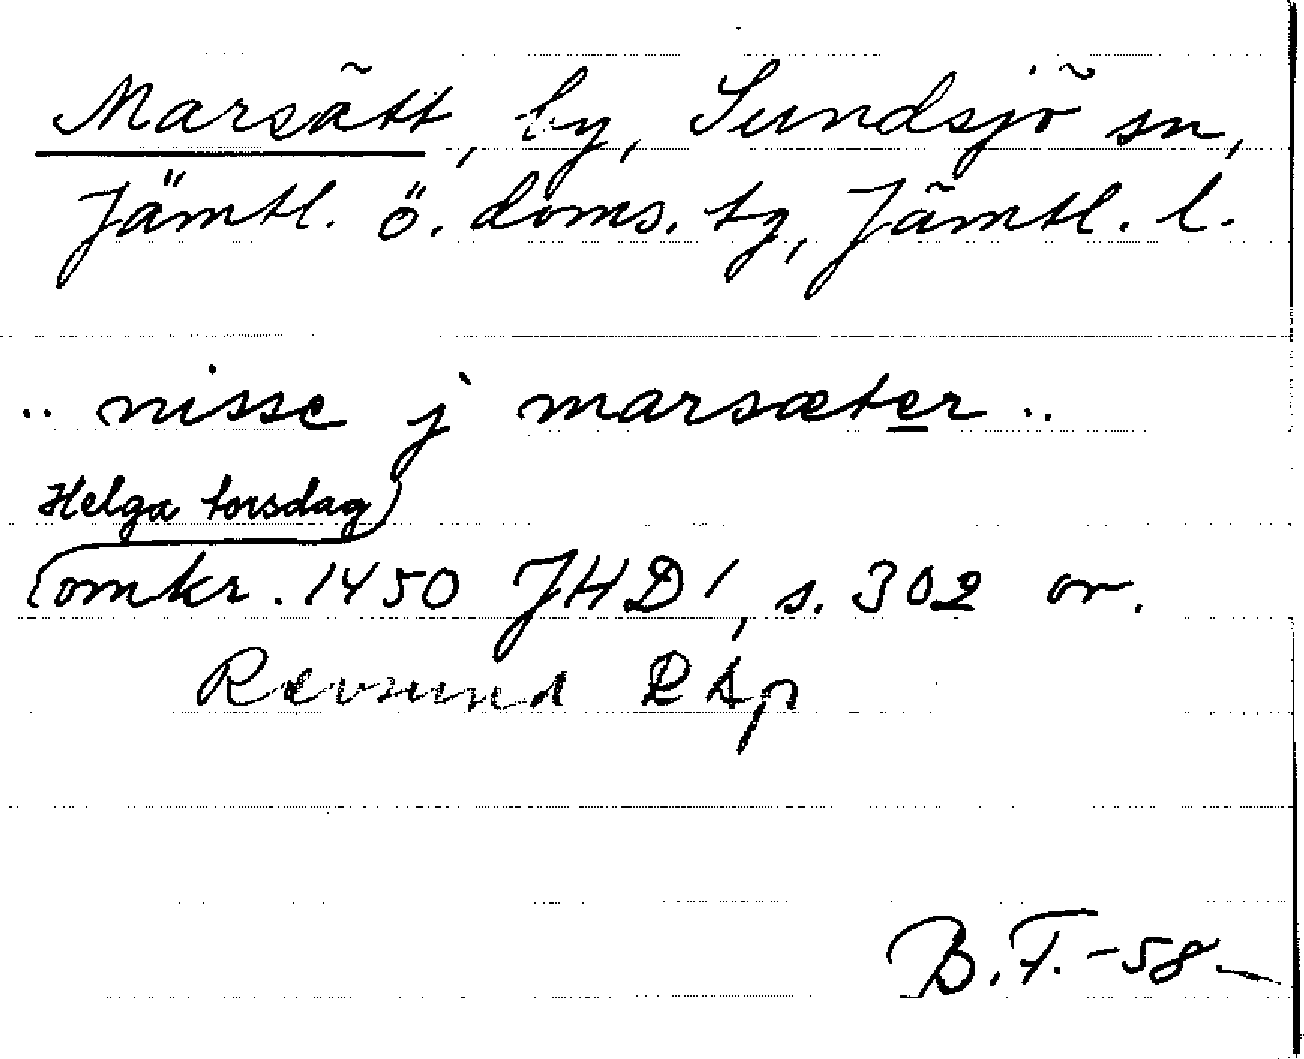 Marsätt, by, Sundsjö sn,
Jämtl. ö. doms. tg, Jämtl. l.
.. nisse j marsæter ..
Helga torsdag
omkr. 1450 JHD 1, s. 302 or.
Revsund
B.F. -58